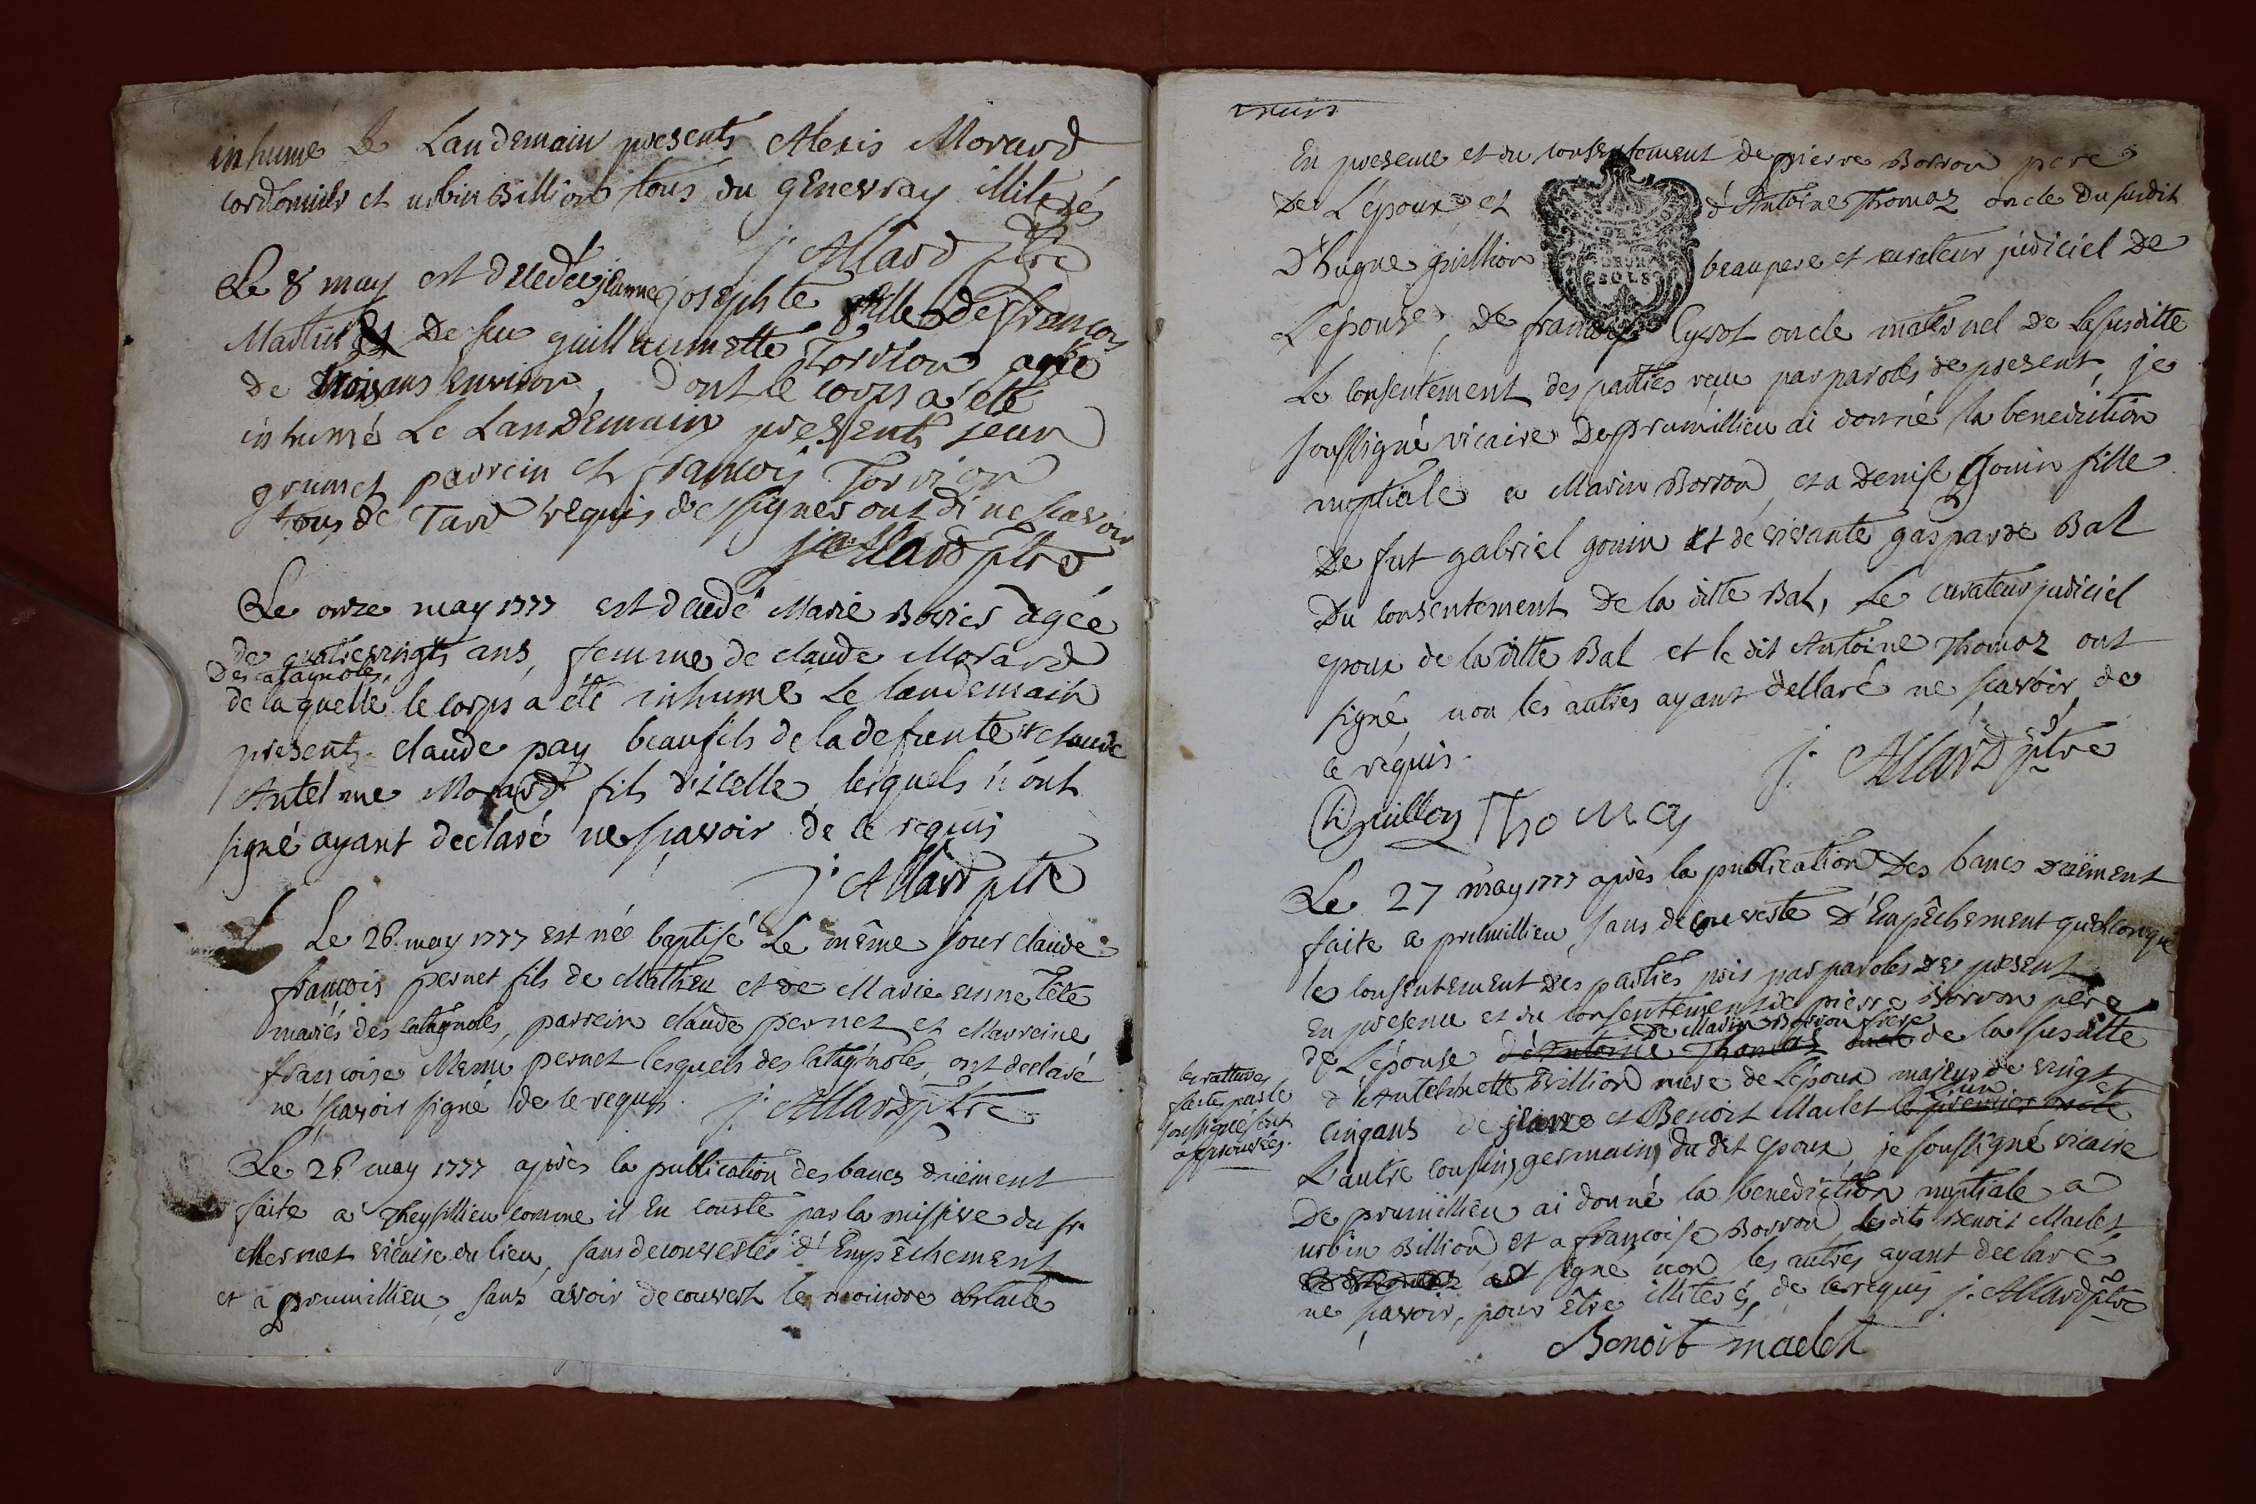 inhumé Le Landemain presents Alexis Morard
cordonnier et urbin Billion tous du genevray illiterés
j. Allard ptre
Le 8 may est decedée jeanne josephte fille de françois
Martin et De feu guillaumette Torvion agée
de trois ans environ, dont le corps a été
inhumé Le Landemain presents jean
grumet parrein et françois Torvion
tous de Tard requis de signer ont di ne scavoir
j. Allard ptre
Le onze may 1777 est decedé Marie Borier agée
de quatrevingts ans, femme de claude Morard
Des catagnoles,
de laquelle le corps a été inhumé Le landemain
presents claude pay beaufils de la defunte et claude
Antelme Morard fils d'icelle lesquels n'ont
signé ayant declaré ne scavoir de ce requis
j. Allard ptre
Le 26 may 1777 est né baptisé Le même jour claude
françois pernet fils de Mathieu et de Marie
mariés des catagnoles, parrein claude pernet et Marreine
françoise pernet lesquels des catagnoles, ont declaré
ne scavoir signé de ce requis. j. Allard ptre
Le 26 may 1777 après la publication des bancs duëment
faite a Theysillieu comme il En conste par la missive du sr
Mernet vicaire du lieu, sans decouverte d'Empêchement
et a prumillieu, sans avoir decouvert le moindre obstacle
En presence et du consentement de pierre Borron pere
De L'époux et d'Antoine Thomaz oncle du susdit
D'hugue guillion beaupere et curateur judiciel de
L'épouse, De françois Cyrot oncle maternel de La susditte
Le consentement des parties reçu par paroles de present, je
soussigné vicaire De prumillieu ai donné la benediction
nuptiale a Marin Borron, et a Denise Gonin fille
De fut gabriel gonin et de vivante gasparde Bal
Du consentement De la ditte Bal, Le curateur judiciel
epoux de la ditte Bal et le dit Antoine Thomaz ont
signé, non les autres ayant dellaré ne scavoir de
ce requis.
j. Allard ptre
h guillon Thomas
Le 27 may 1777 après la publication Des bancs duëment
faite a prumillieu, sans decouverte d'Empêchement quelconque
le consentement des parties pris par paroles de present
En presence et du consentement de pierre Borron père
De Marin Borron frere
de L'épouse d'Antoine Thomas oncle de la susditte
d'Antelmette Billion mere de L'époux majeur de vingt
l'un
cinq ans de pierre et Benoit Maclet le premier oncle et
L'autre cousins germains du dit epoux je soussigné vicaire
De prumillieu ai donné la benediction nuptiale a
urbin Billion et a françoise Borron, lesdits Benoit Maclet
a signé non les autres ayant declaré
ne scavoir, pour être illiterés, de ce requis j. Allard ptre
Benoit maclet
les ratures
faite par le
soussigné sont
approuvées.